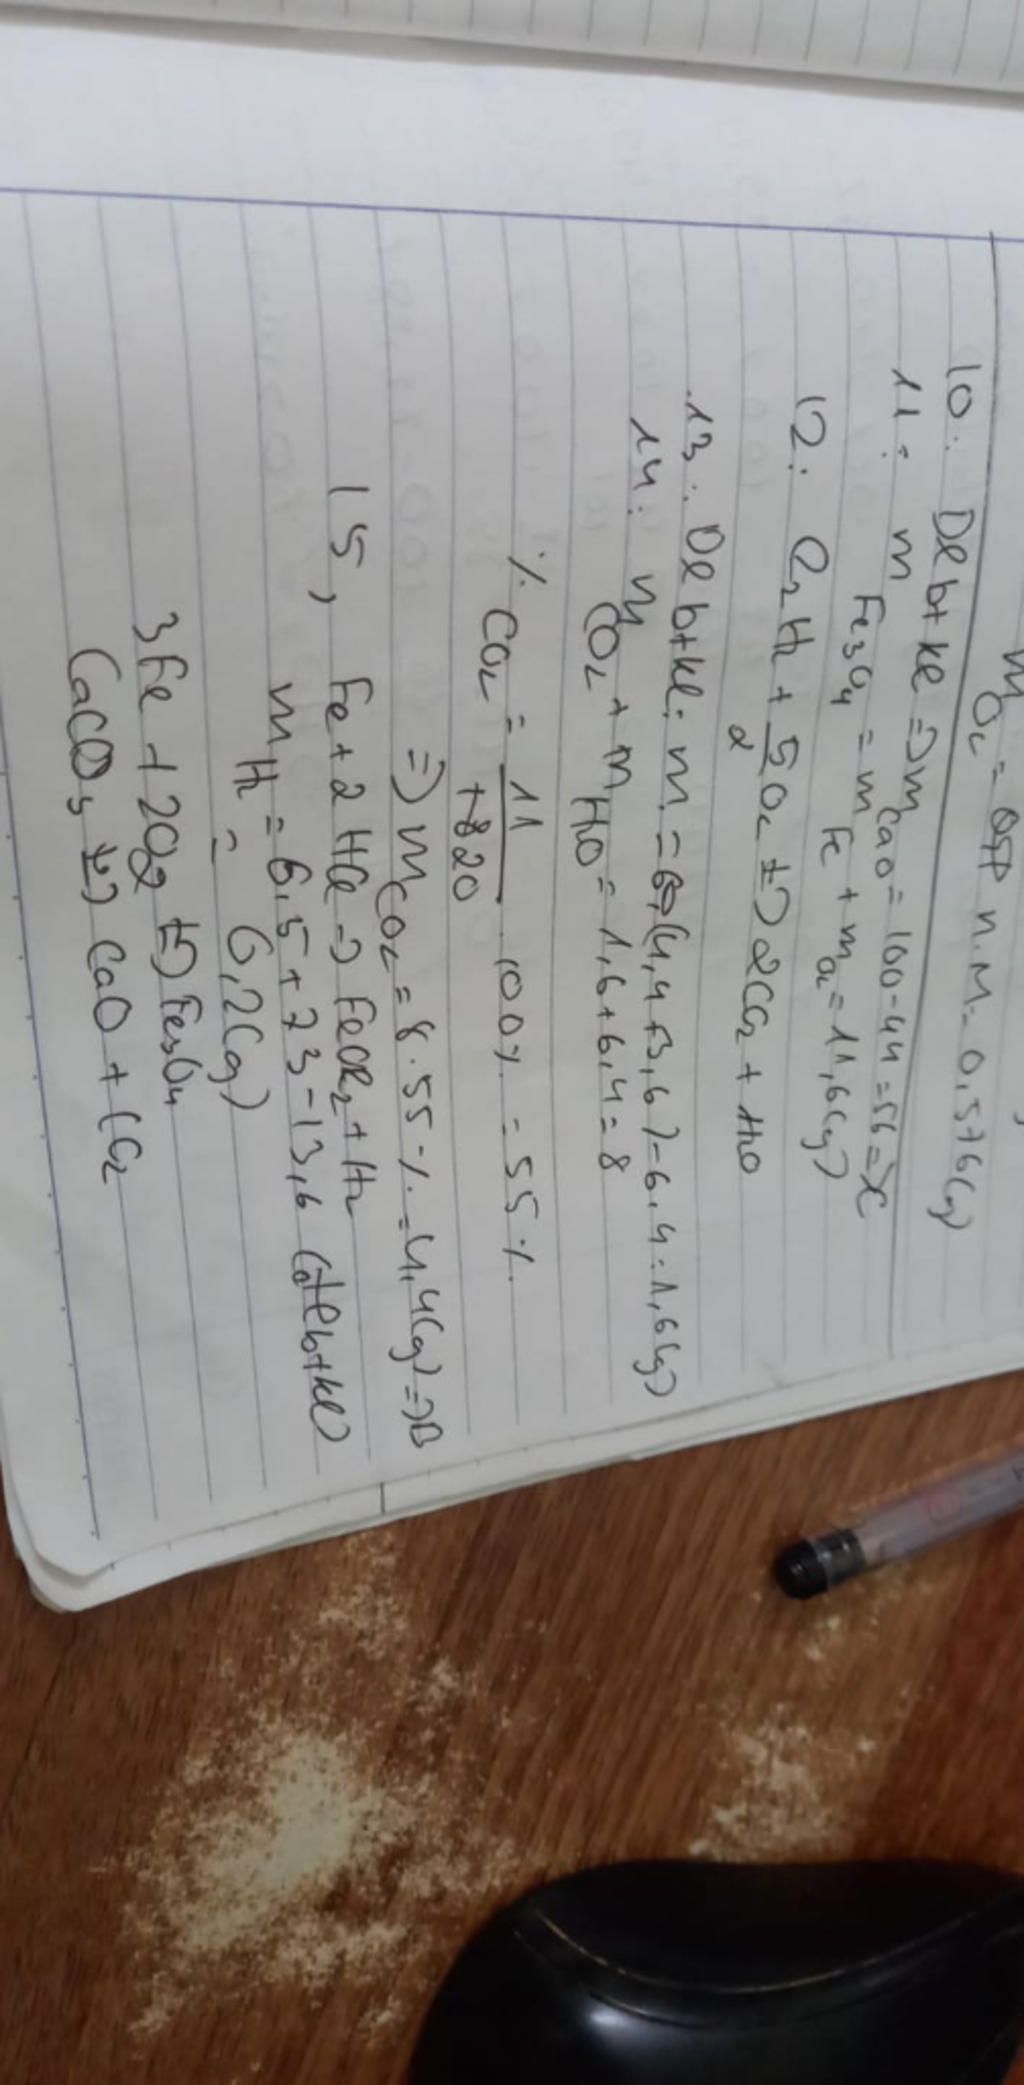 m O₂ = n.M = 0,576(g)
10: Dlbtkl => m CaO = 100-44 = 56 => x
11: m Fe₃O₄ = m Fe + m O₂ = 11,6(g)
12: C₂H₂ + 5/2 O₂ t°-> 2CO₂ + H₂O
13: Dlbtkl: m = (4,4+3,6)-6,4 = 1,6(g)
14: m CO₂ + m H₂O = 1,6+6,4 = 8
% CO₂ = 11/20 . 100% = 55%
=> m CO₂ = 8.55% = 4,4(g) => B
15, Fe + 2HCl -> FeCl₂ + H₂
m H₂ = 6,5+73-13,6 (dlbtkl)
= 0,2(g)
3Fe + 2O₂ t°-> Fe₃O₄
CaCO₃ t°-> CaO + CO₂